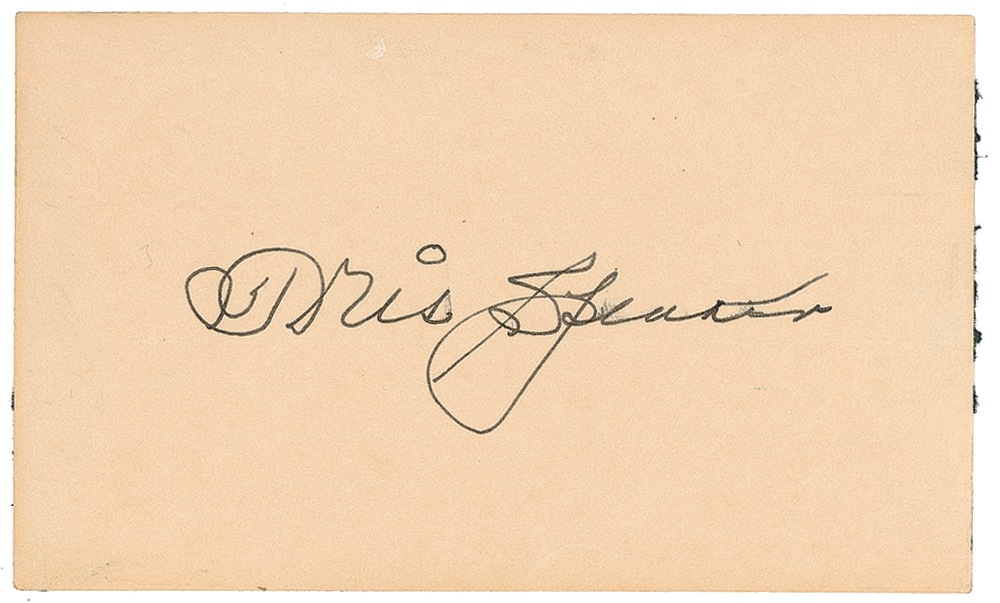 Tris Speaker